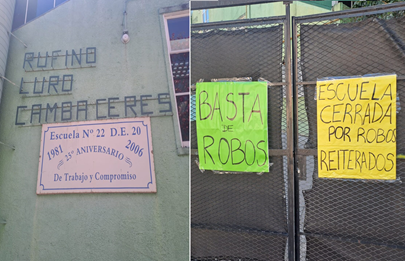 RUFINO
LURO
CAMBACERES
Escuela Nº 22 D.E. 20
1981 2006
25º ANIVERSARIO
De Trabajo y Compromiso
BASTA
DE
ROBOS
ESCUELA
CERRADA
POR ROBOS
REITERADOS